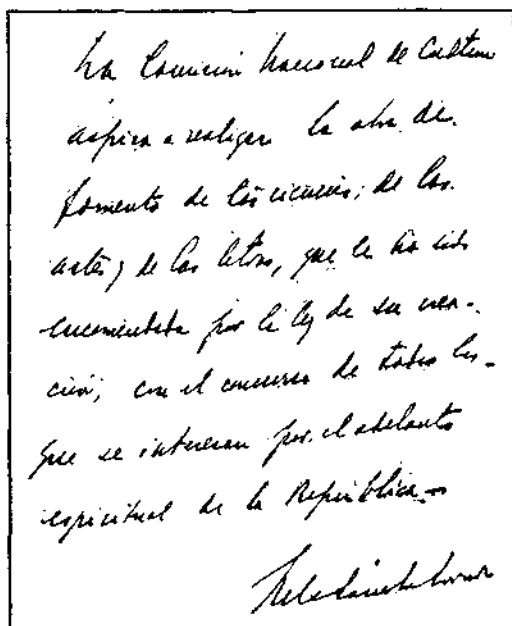 La Comisión Nacional de Cultura
aspira a realizar la obra de
fomento de las ciencias, de las
artes y de las letras, que le ha sido
encomendada por la ley de su crea-
ción, con el concurso de todos los
que se interesan por el adelanto
espiritual de la República.—